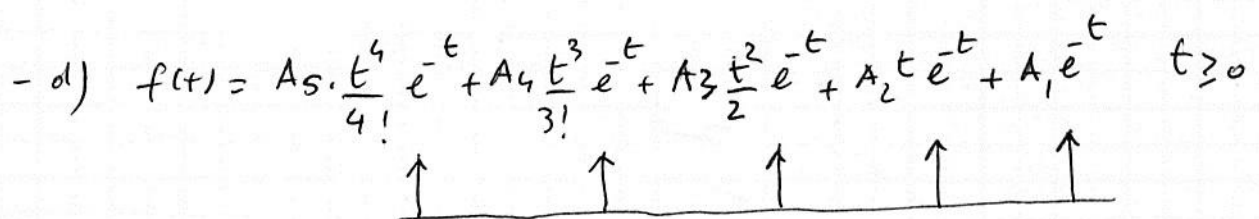 - d) f(t) = A5. t^4/4! e^-t + A4 t^3/3! e^-t + A3 t^2/2 e^-t + A2 t e^-t + A1 e^-t t ≥ 0